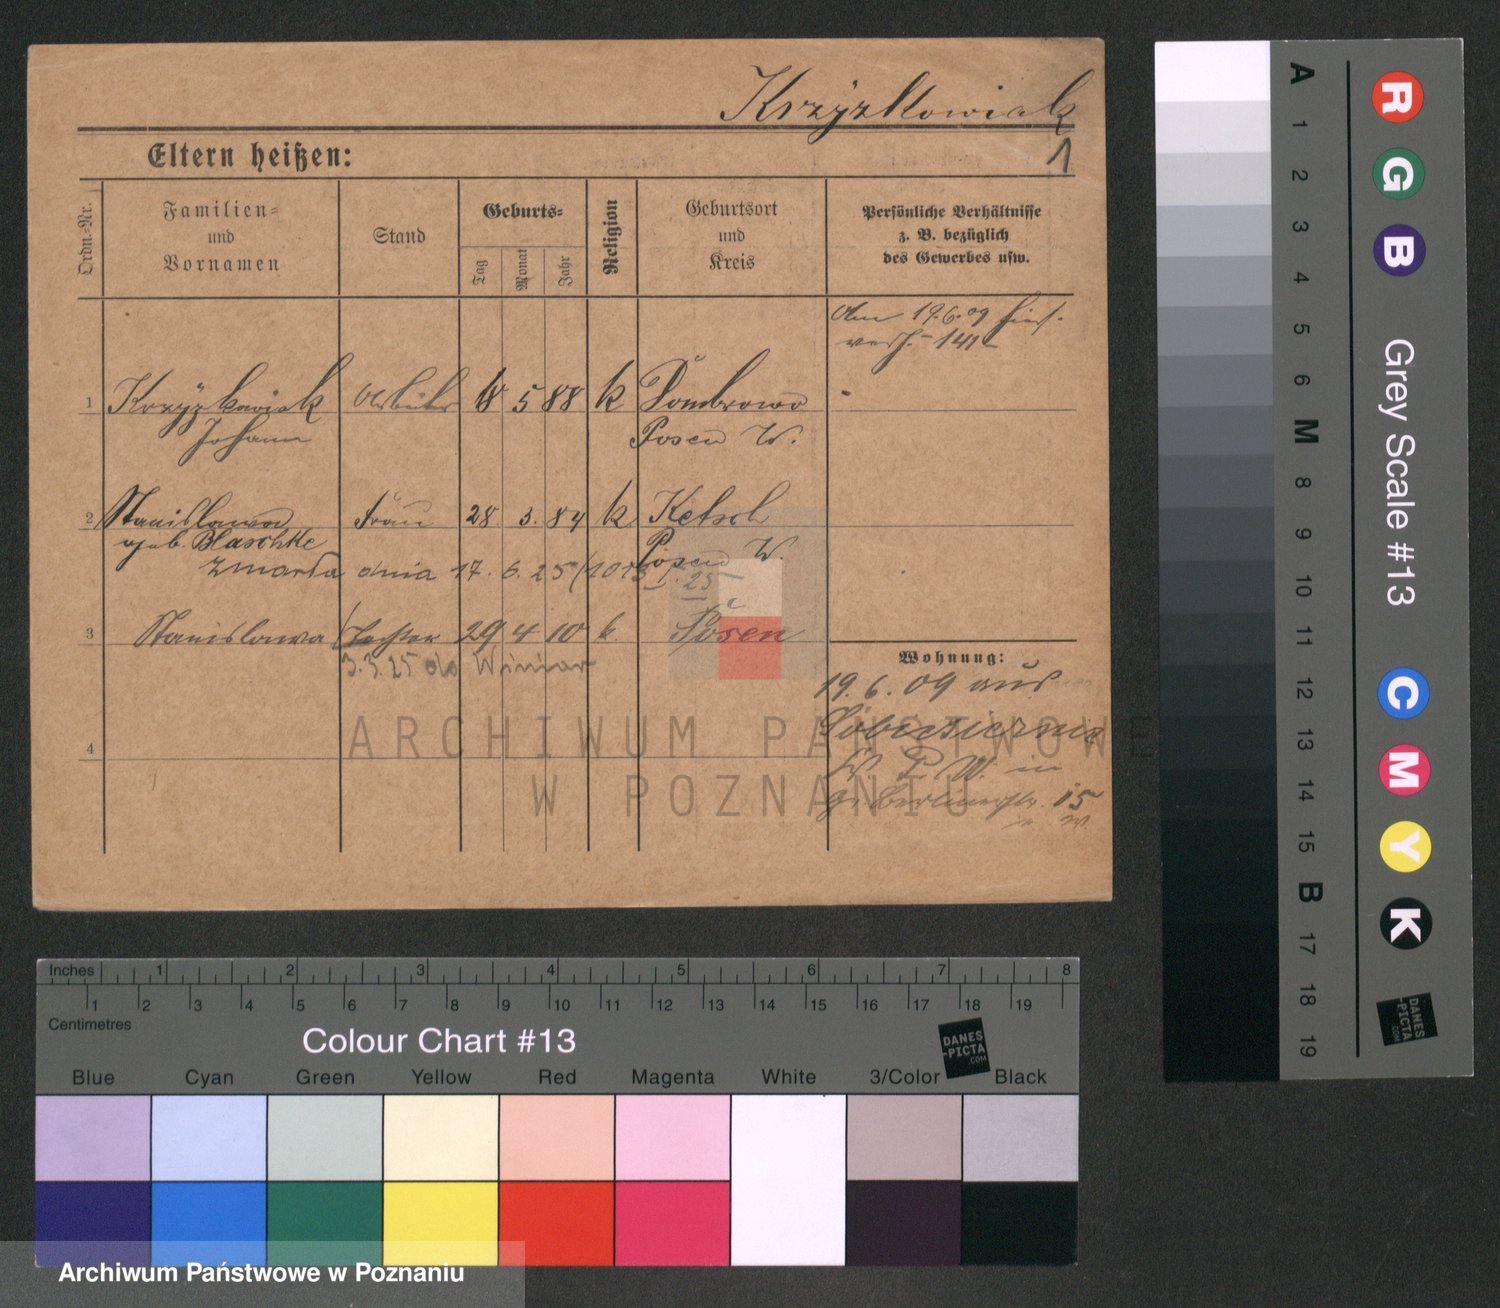 Krzyżkowiak
1
Eltern heißen:
Ordn.=Nr.
Familien=
und
Vornamen
Stand
Geburts=
Tag
Monat
Jahr
Religion
Geburtsort
und
Kreis
Persönliche Verhältnisse
z. B. bezüglich
des Gewerbes usw.
19.6.09
verh. 141
1 Krzyżkowiak 18 5 88 k Dombrowo
Johann Posen W.
2 Stanislawa Frau 28 3. 84 k Ketsch
geb. Blaschke Posen W.
zmarła dnia 17. 6. 25
25
3 Stanislawa Tochter 29 4 10 k. Posen
3.3.25 do Winiar
4
Wohnung:
19.6.09 aus
P. W. in
15
ARCHIWUM PAŃSTWOWE
W POZNANIU
A 1 2 3 4 5 6 M 8 9 10 11 12 13 14 15 B 17 18 19
R G B
Grey Scale #13
C M Y K
DANES
-PICTA
.COM
Inches 1 2 3 4 5 6 7 8
1 2 3 4 5 6 7 8 9 10 11 12 13 14 15 16 17 18 19
Centimetres
Colour Chart #13
DANES
-PICTA
.COM
Blue Cyan Green Yellow Red Magenta White 3/Color Black
Archiwum Państwowe w Poznaniu